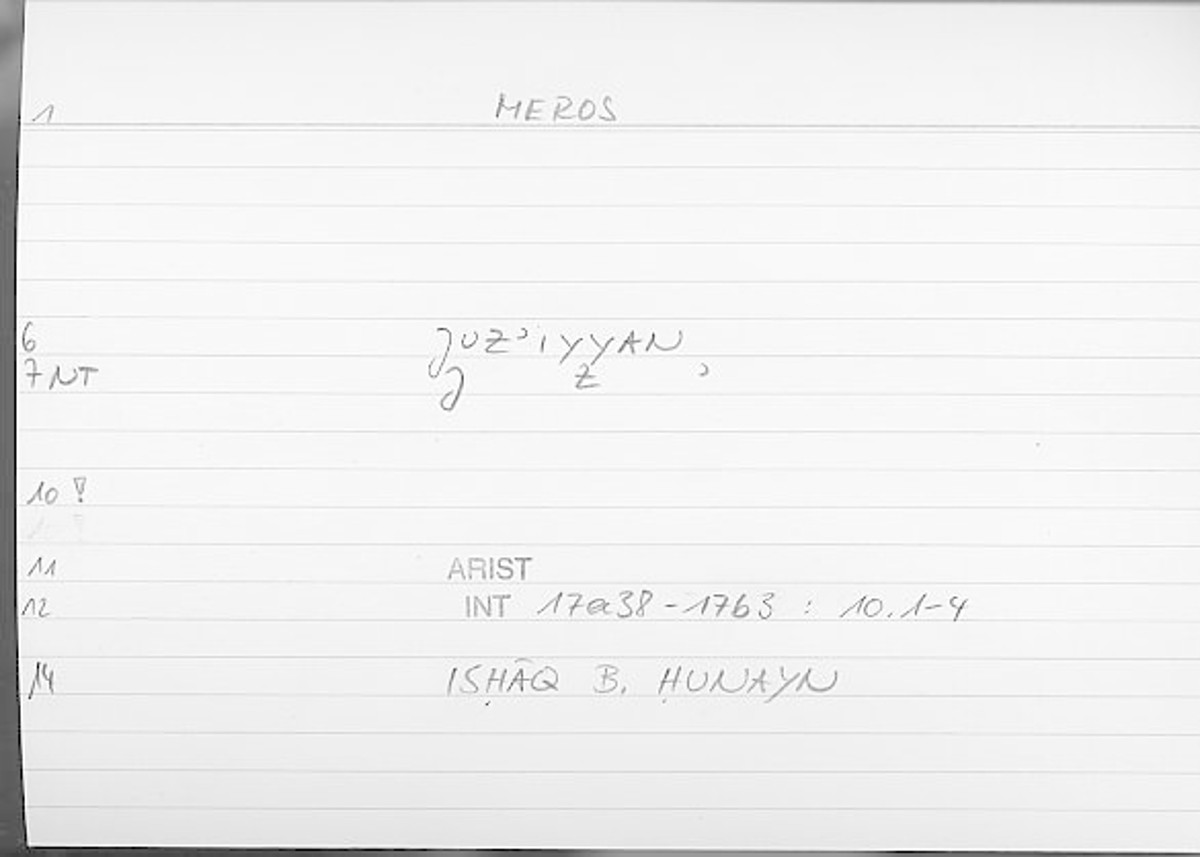 1 MEROS
6 JUZʾIYYAN
7 NT J Z ʾ
10 !
11 ARIST
12 INT 17a38-17b3 : 10.1-4
14 ISḤĀQ B. ḤUNAYN